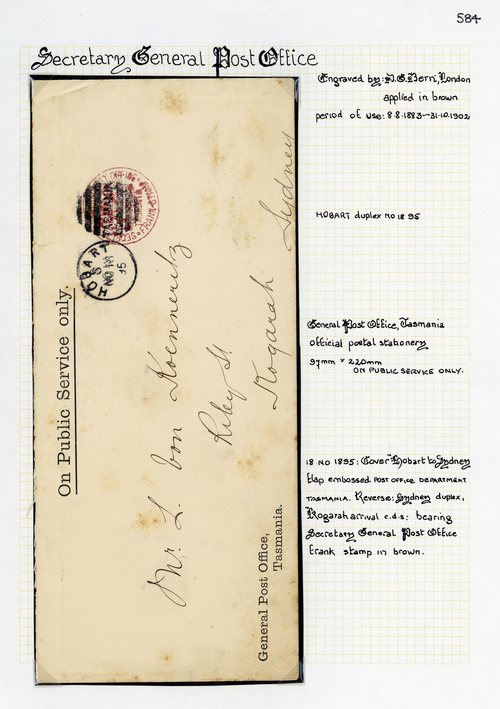 584
Secretary General Post Office
Engraved by: D.G. Berri, London
applied in brown
period of use: 8.8.1883—31.10.1902
HOBART duplex NO 18 95
General Post Office, Tasmania
official postal stationery
97mm × 220mm
ON PUBLIC SERVICE ONLY.
18 NO 1895: Cover Hobart to Sydney
flap embossed POST OFFICE DEPARTMENT
TASMANIA. Reverse: Sydney duplex,
Kogarah arrival c.d.s: bearing
Secretary General Post Office
frank stamp in brown.
On Public Service only.
HOBART
NO 18
95
TASMANIA
FRANK STAMP
Mr. L. Von Koenneritz
Riley St
Kogarah
Sydney
General Post Office,
Tasmania.